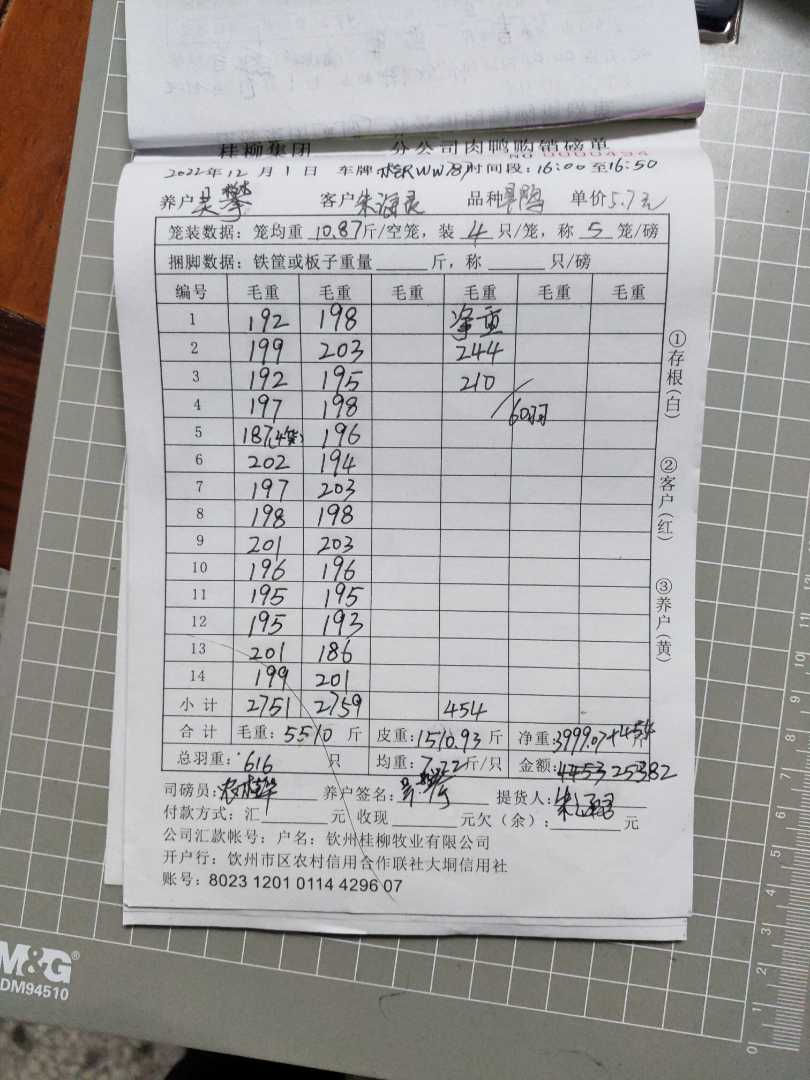 桂柳集团 分公司肉鸭购销磅单
NO 0000494
2022年12月1日 车牌桂RWW787时间段:16:00至16:50
养户吴攀 客户朱海 品种 单价5.7元
笼装数据:笼均重10.87斤/空笼,装4只/笼,称5笼/磅
捆脚数据:铁筐或板子重量 斤,称 只/磅
编号 毛重 毛重 毛重 毛重 毛重 毛重
1 192 198 净重
2 199 203 244
3 192 195 210
4 197 198 /60羽
5 187(4笼) 196
6 202 194
7 197 203
8 198 198
9 201 203
10 196 196
11 195 195
12 195 193
13 201 186
14 199 201
小计 2751 2759 454
合计 毛重:5510斤 皮重:1510.93斤 净重:3999.07+454
总羽重:616只 均重:7.22斤/只 金额:4453 25382
司磅员: 养户签名:吴攀 提货人:朱
付款方式:汇 元 收现 元欠(余): 元
公司汇款帐号:户名:钦州桂柳牧业有限公司
开户行:钦州市区农村信用合作联社大垌信用社
账号:8023 1201 0114 4296 07
①存根(白)
②客户(红)
③养户(黄)
M&G
DM94510
0 1 2 3 4 5
9 10 11 12